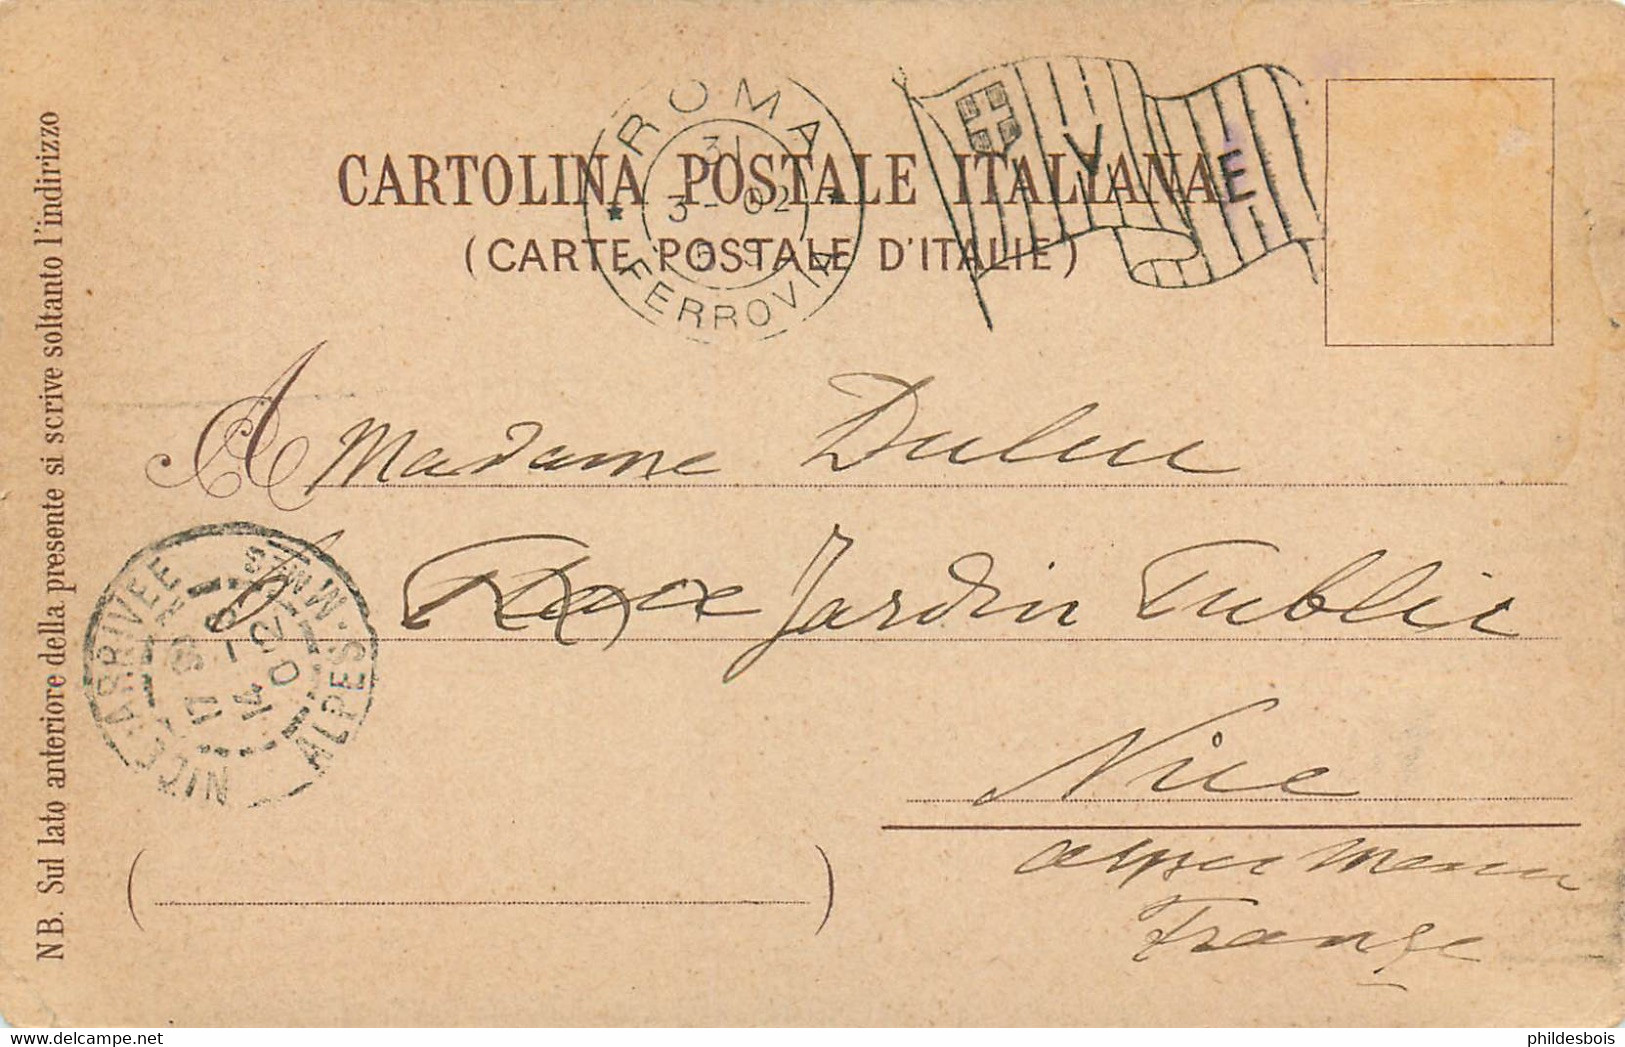 CARTOLINA POSTALE ITALIANA
(CARTE POSTALE D'ITALIE)
ROMA
31
3 - 02
FERROVIA
V E
N B. Sul lato anteriore della presente si scrive soltanto l'indirizzo
A Madame
6 Jardin Public
Nice
France
NICE-ARRIVEE
ALPES-MMES
phildesbois
www.delcampe.net